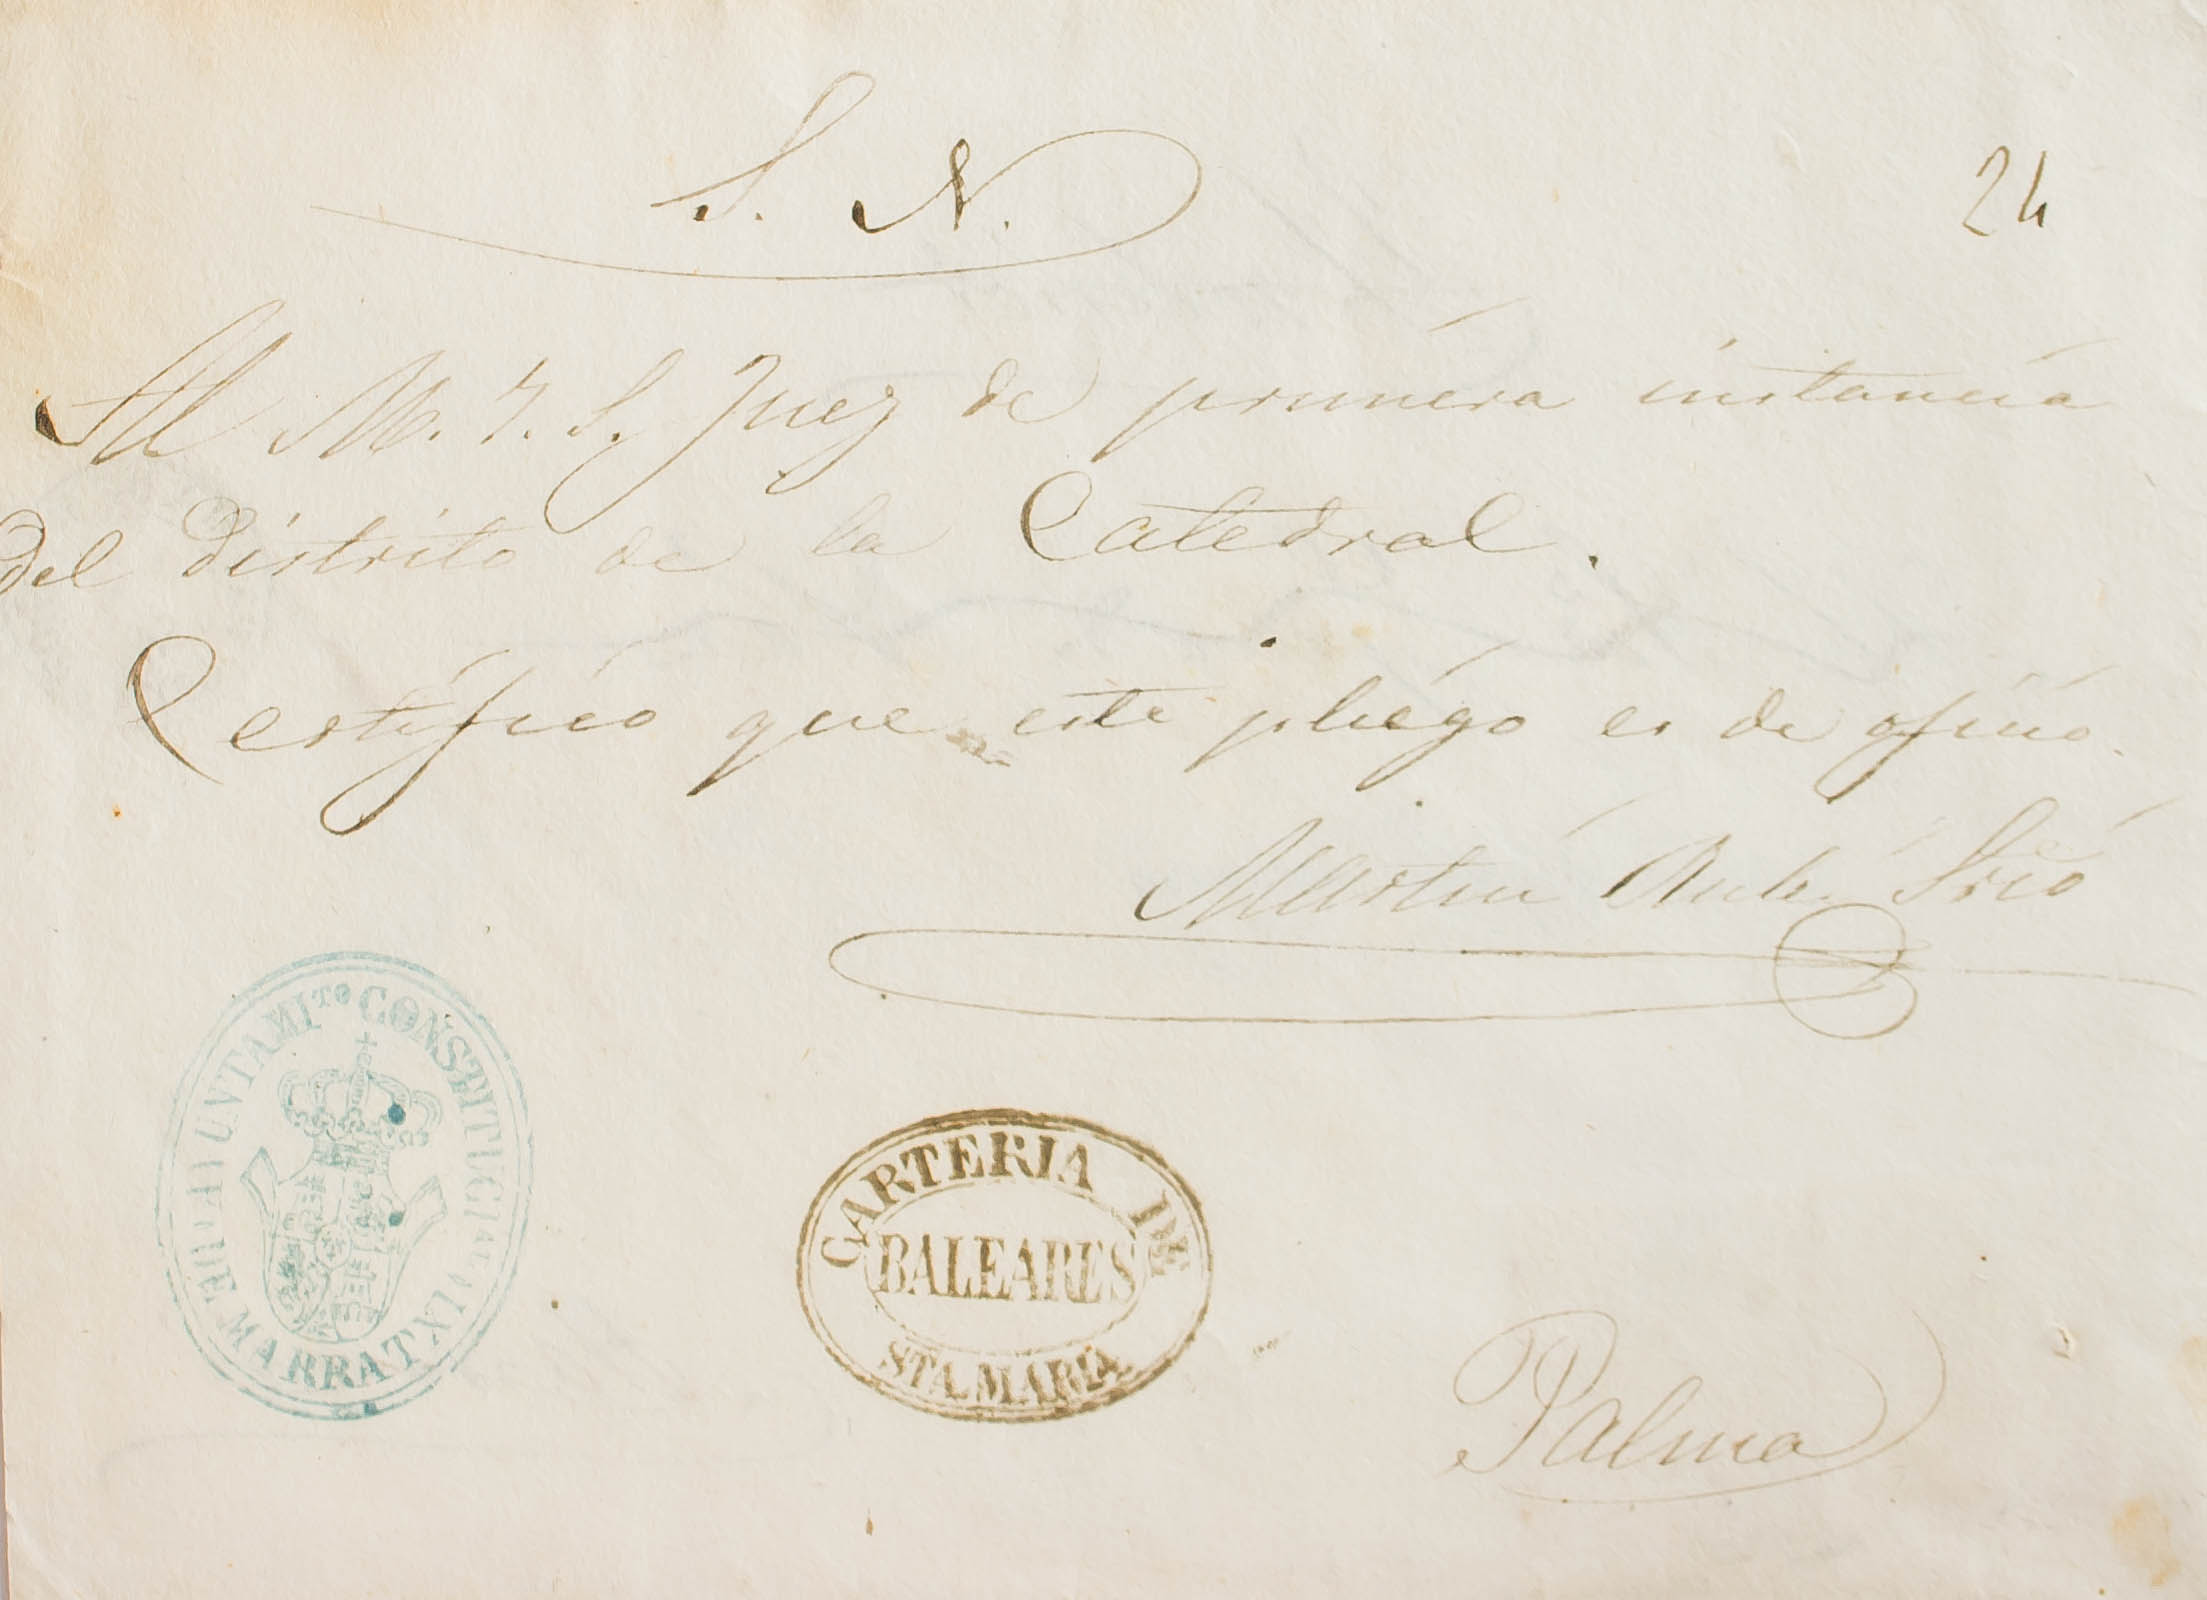 S. N.
24
Al M. I. S. Juez de primera instancia
del distrito de la Catedral.
Certifico que este pliego es de ofisio.
Martin Srio
AYUNTAMITO CONSTITUCIAL
DE MARRATXI
CARTERIA DE
BALEARES
STA. MARIA
Palma